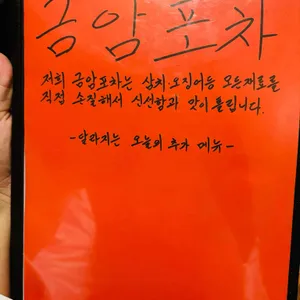 금암포차
저희 금암포차는 삼치.오징어등 모든재료를
직접 손질해서 신선함과 맛이 틀립니다.
-달라지는 오늘의 추가 메뉴-